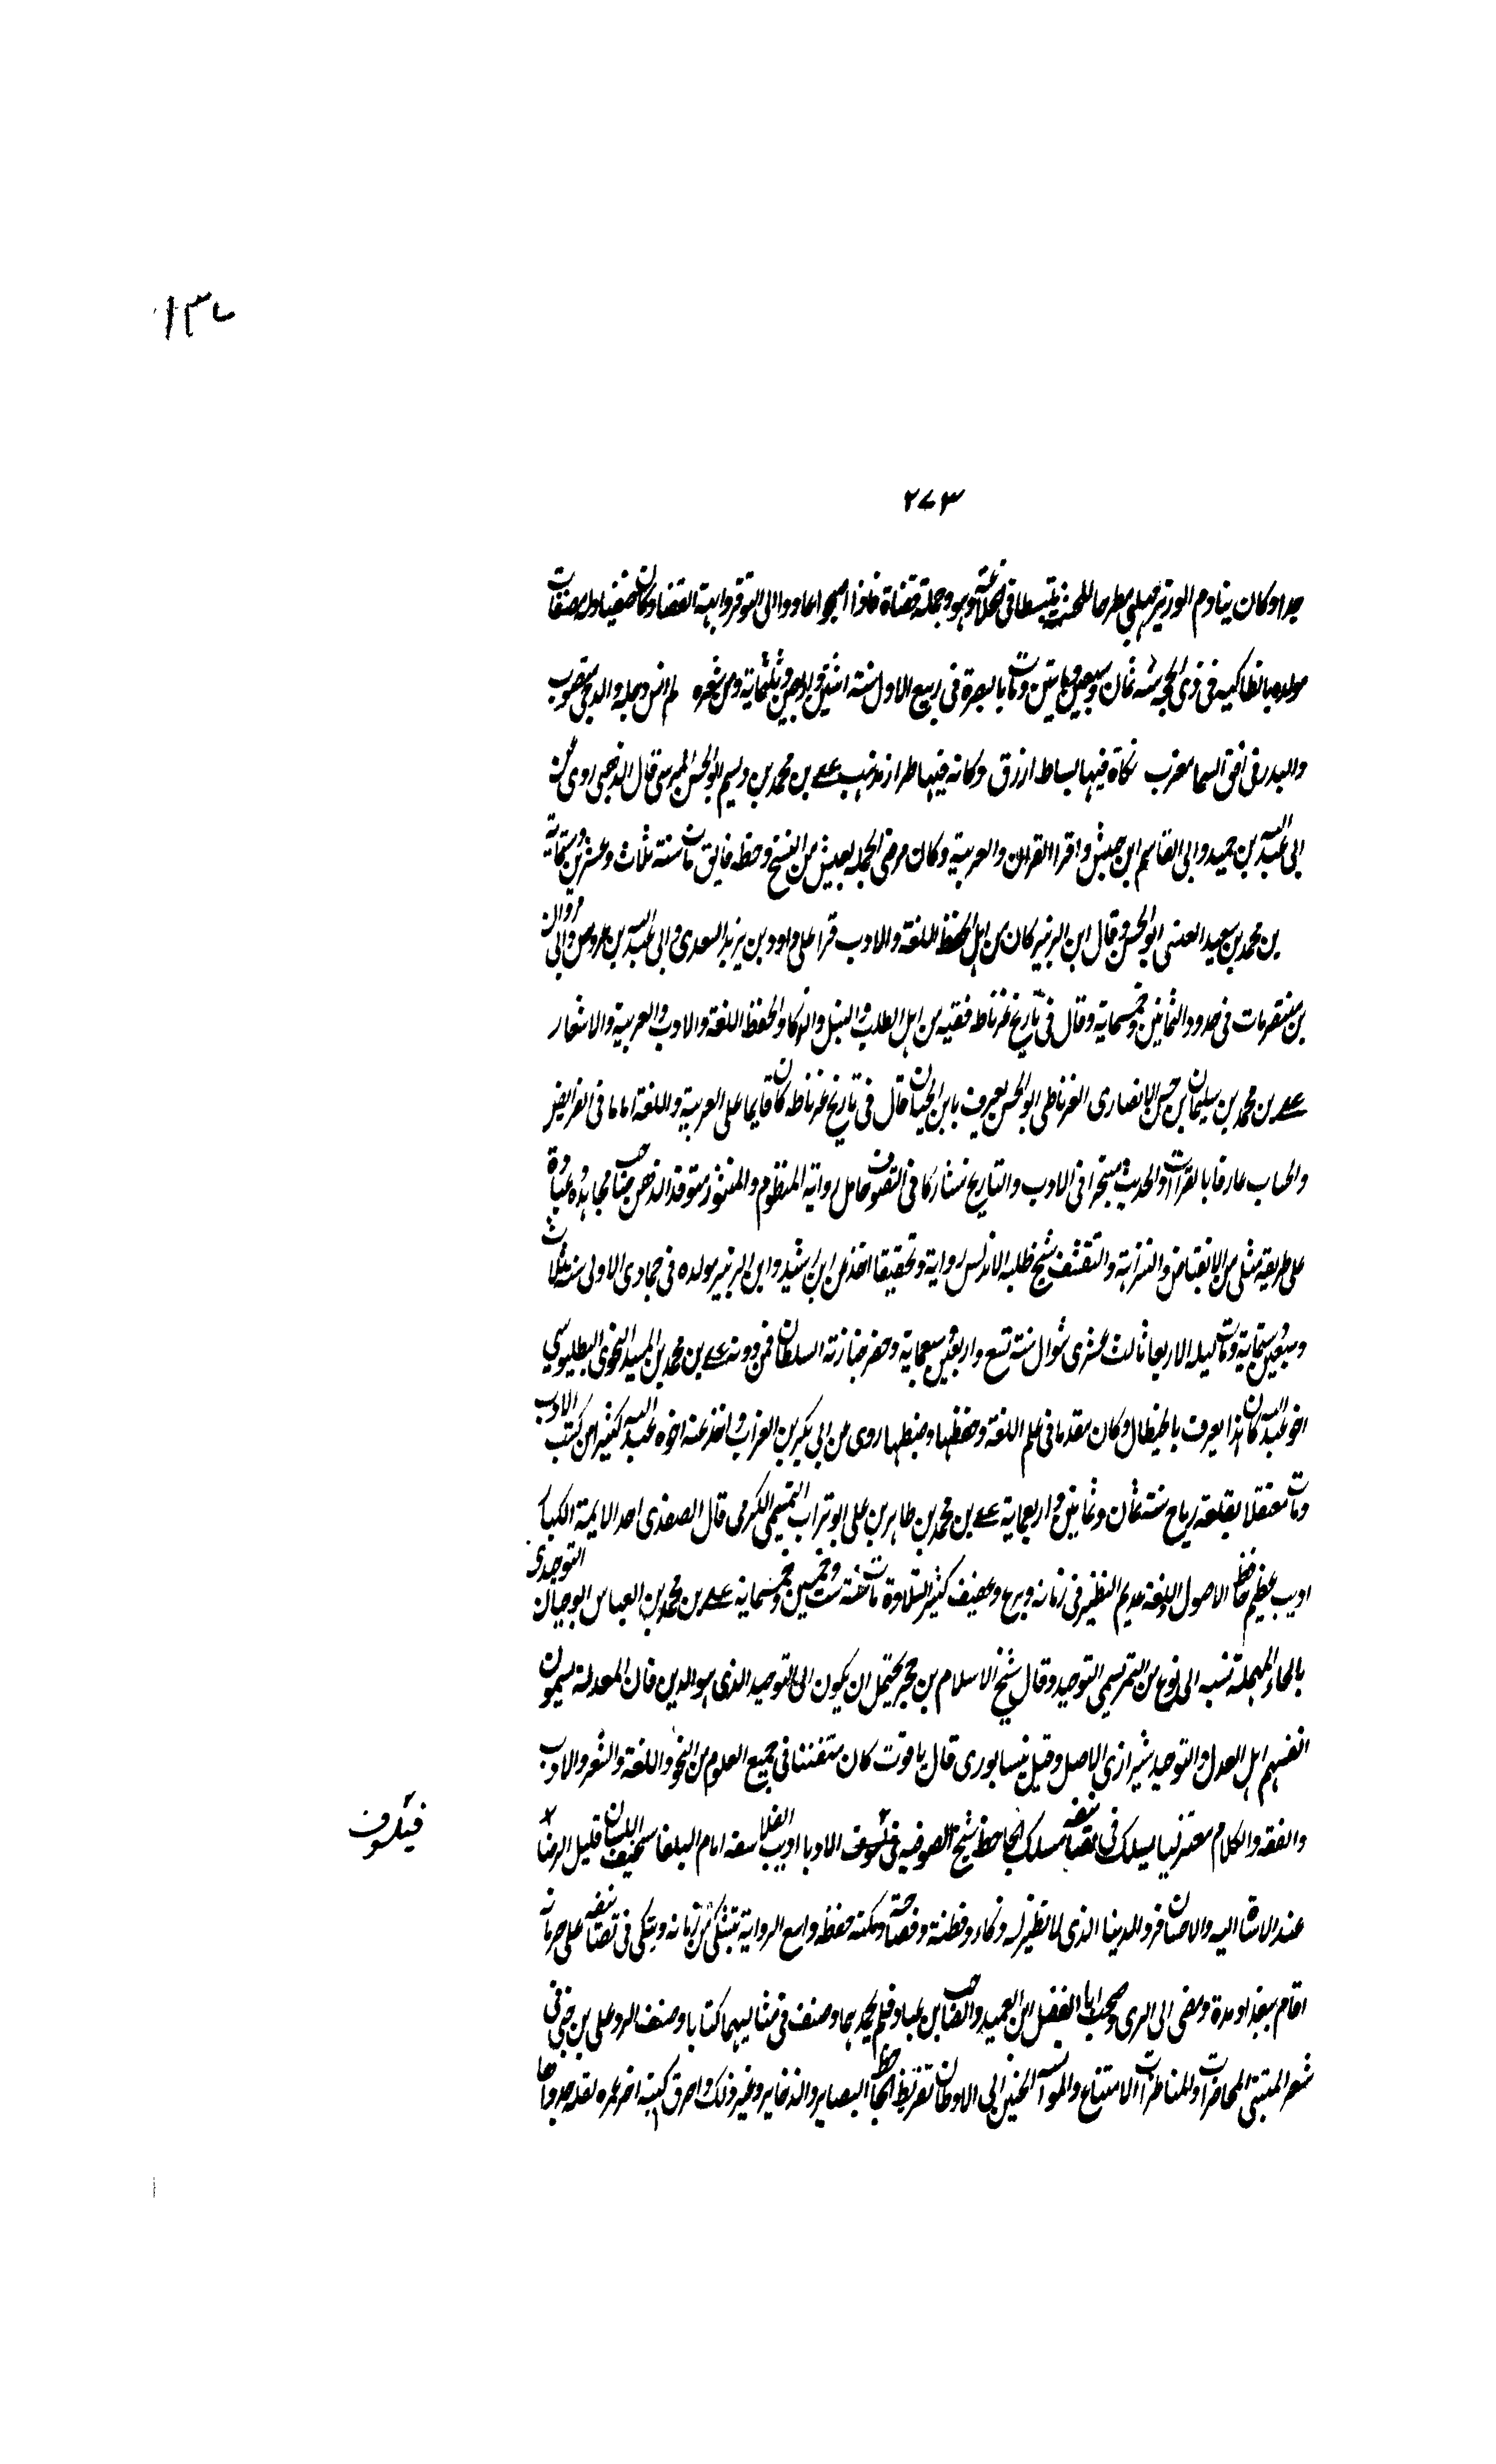 ١٣٧
٢٧٣
جدا وكان ينادم الوزير المهلبي مطرحا للحشمة متبسطا في الخلاعة هو وجملة قضاة فاذا اصبحوا عادوا الى التوقر وابهة القضا وكان ضعيفا وله مصنفات
مولده بانطاكيه في ذى الحجة سنة ثمان وسبعين وماتين ومات بالبصرة في ربيع الاول سنة اثنين واربعين وثلثماية ومن شعره لم انس دجلة والدجى متصوب
والبدر في افق السما مغرب فكانه فيها بساط ازرق وكانه فيها طراز مذهب علے بن محمد بن ديسم ابو الحسن المرسى قال الذهبى روى عن
ابى عبد الله بن حميد وابى القاسم ابن حبيش واقرا القران والعربية وكان مرضى الجملة يعيش من النسخ وخطه فايق مات سنة ثلاث وعشرين وستماية
بن محمد بن سعيد العنسى ابو الحسن قال ابن الزبير كان من اهل الحفظ للغة والادب قرا على داود بن يزيد السعدى وابى عبد الله بن عروس وابى مروان
بن مات في حدود الثمانين وخمسماية وقال في تاريخ غرناطه فقيه من اهل الطلب والنبل والذكا والحفظ اللغة والادب والعربية والاشعار
علے بن محمد بن سليمان بن حسن الانصارى الغرناطى ابو الحسن يعرف بابن الجياب قال في تاريخ غرناطه كان قايما على العربية واللغة اماما في الفرايض
والحساب عارفا بالقرات والحديث متبحرا في الادب والتاريخ مشاركا في التصوف حامل رواية المنظوم والمنثور متوقد الذهن صاحب مجاهدة وعبادة
على طريقة مثلى من الانقباض والنزاهة والتقشف شيخ طلبه الاندلس رواية وتحقيقا اخذ عن ابن رشيد وابن الزبير مولده في جمادى الاولى سنة ثلاث
وسبعين وستماية ومات ليله الاربعا ثالث عشرى شوال سنة تسع واربعين وسبعماية وحضر جنازته السلطان فمن دونه علے بن محمد بن السيد النحوى البطليوسى
اخو عبد الله كان هذا يعرف بالخيطال وكان مقدما في علم اللغة وحفظها وضبطها روى عن ابى بكر بن الغراب واخذ عنه اخوه عبد الله كثيرا من كتب الادب
ومات معتقلا بقلعة رباح سنة ثمان وثمانين واربعماية علے بن محمد بن طاهر بن على ابو تراب التميمى الكرمى قال الصفدى احد الايمة الكبار
اديب عظيم حافظ الاصول اللغة عديم النظير في زمانه ورع وعفيف كثير التلاوة مات سنة ست وخمسين وخمسماية علے بن محمد بن العباس ابو حيان التوحيدى
بالحاء المهملة نسبه الى نوع من التمر يسمى التوحيد وقال شيخ الاسلام بن حجر يحتمل ان يكون الى التوحيد الذى هو الدين فان المعتزلة يسمون
انفسهم اهل العدل والتوحيد شيرازى الاصل وقيل نيسابورى قال ياقوت كان متفننا في جميع العلوم من النحو واللغة والشعر والادب
والفقه والكلام معتزليا يسلك في تصانيفه مسلك الجاحظ شيخ الصوفيه فيلسوف الادبا اديب الفلاسفه امام البلغا سخيف اللسان قليل الرضا
فيلسوف
عند الاساة اليه والاحسان فرد الدنيا الذى لا نظير له ذكاء وفطنة وفصاحة ومكنة حفظه واسع الرواية يتشكى من زمانه ويبكى في تصانيفه على حرمانه
اقام ببغداد مدة ومضى الى الرى وصحب ابا الفضل ابن العميد والصاحب بن عباد فلم يحمدهما وصنف في مثالبهما كتابا وصنف الرد على بن جنى في
شعر المتنبى المحاضرات والمناظرات الامتاع والموانسه الحنين الى الاوطان تقريظ الجاحظ البصاير والذخاير وغير ذلك واحرق كتبه اخر عمره لقلة جدواها